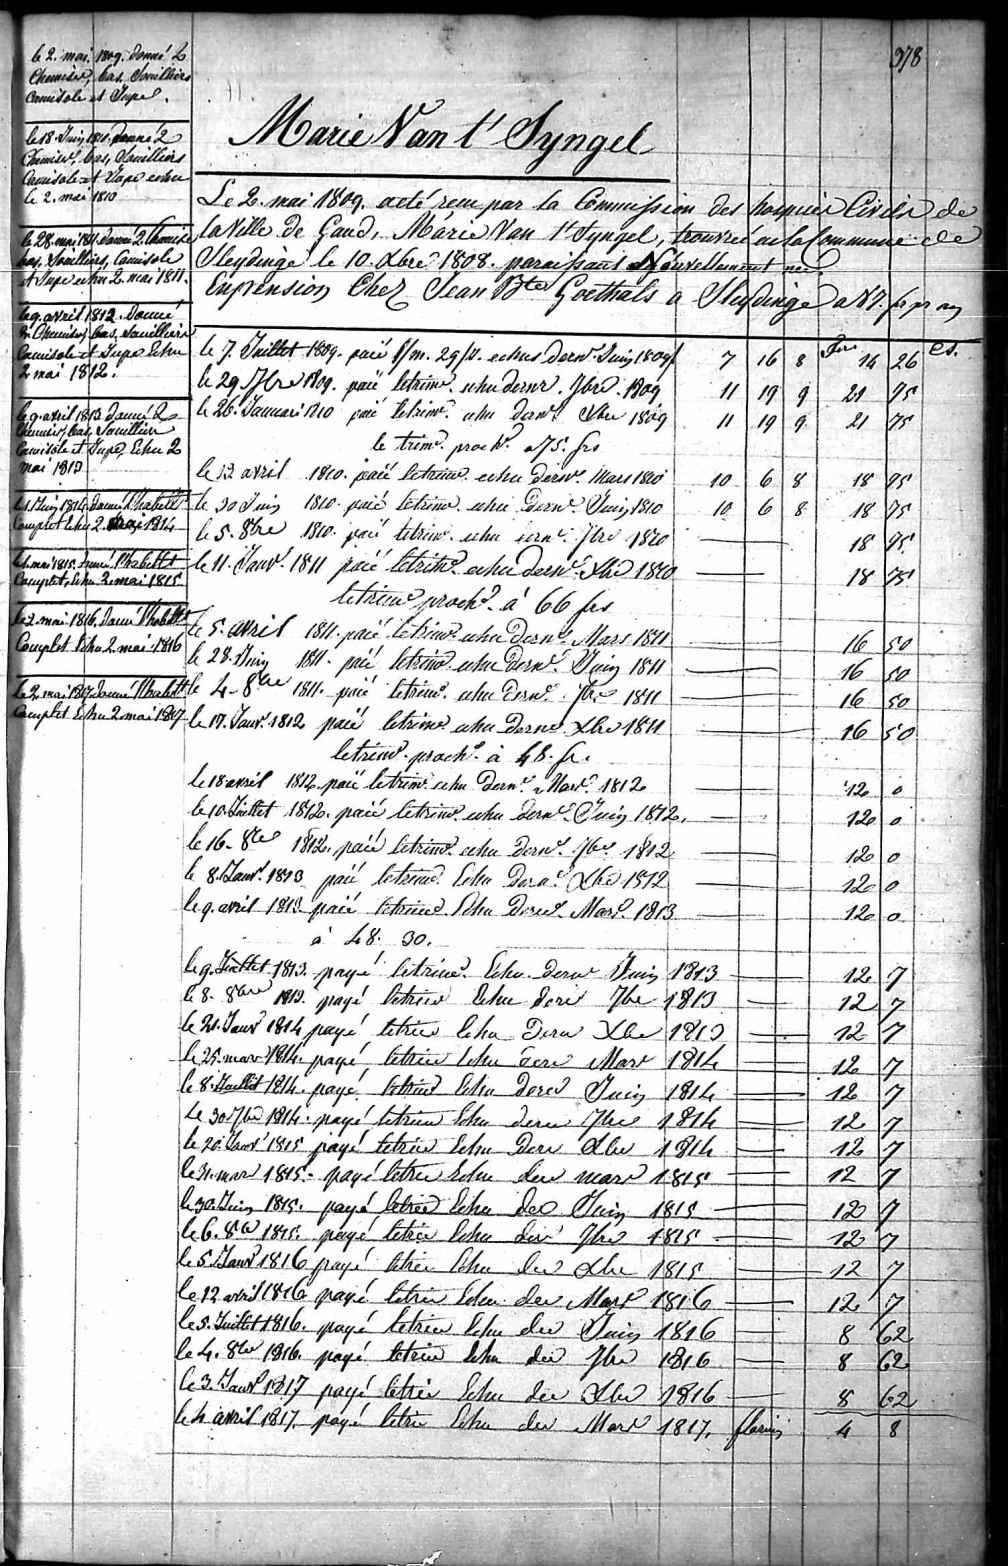 378
le 2. mai. 1809. donné 2
Chemises, bas, Souilliers
Camisole et Jupe.
le 18. Juin 1810. donné 2
Chemises, bas, Souilliers
Camisole et Jupe echu
le 2. mai 1810
le 28. mai 1811. donné 2 Chemise
bas, Souilliers, Camisole
et Jupe echu 2. mai 1811.
le 9. avril 1812. Donné
2 Chemises, bas, Souilliers
Camisole et Jupe Echu
2 mai 1812.
le 9. avril 1813 donné 2
Chemises, bas, Souilliers
Camisole et Jupe, Echu 2
mai 1813
Juin 1814 donné l'habillt
Complet Echu 2. mai 1814
mai 1815. donné l'habillt
Complet, Echu 2 mai 1815
le 2. mai 1816. donné l'habillt
Complet Echu 2 mai 1816
le 2. mai 1817 donné l'habillt
Complet Echu 2 mai 1817
Marie Van t' Syngel
Le 2. mai 1809. a été recu par la Commission des hospices Civils de
la Ville de Gand, Marie Van t' Syngel, trouvée en la Commune de
Sleydinge le 10. Xbre 1808. paraissant Nouvellement née
En pension Chez Jean Bte Goethals a Sleydinge a 87. fr pr an
le 7. Juillet 1809. paié echus dernr. Juin 1809 7 16 8 14 26 Cs.
le 29 7bre 1809. paié le trime. echu dernr. 7bre 1809 11 19 9 21 75
le 26. Januari 1810 paié le trime. echu dernr. Xbre 1809 11 19 9 21 75
le trime. proche. a 75. frs
le 12 avril 1810. paié le trime. echu dernr. Mars 1810 10 6 8 18 75
le 30 Juin 1810. paié le trime. echu dernr. Juin 1810 10 6 8 18 75
le 5. 8bre 1810. paié le trime. echu dernr. 7bre 1810 18 75
le 11. Janvr. 1811 paié le trime. echu dernr. Xbre 1810 18 75
le trime proche. á 66 frs
le 5. avril 1811. paié le trime. echu dernr. Mars 1811 16 50
le 28. Juin 1811. paié le trime. echu dernr. Juin 1811 16 50
le 4. 8bre 1811. paié le trime. echu dernr. 7bre 1811 16 50
le 17. Janvr. 1812 paié le trime. echu dernr. Xbre 1811 16 50
le trime. proche. à 48. fr.
le 18 avril 1812. paié le trime. echu dernr. Mars. 1812 12 0
le 10. Juillet 1812. paié le trime. echu dernr. Juin 1812. 12 0
le 16. 8bre 1812. paié le trime. echu dernr. 7bre 1812 12 0
le 8. Janvr. 1813 paié le trime. Echu dernr. Xbre 1812 12 0
le 9. avril 1813. paié le trime. Echu dernr. Mars. 1813 12 0
à 48. 30.
le 9. Juillet 1813. payé le trime. Echu dernr Juin 1813 12 7
le 8. 8bre 1813. payé le trime Echu dernr 7bre 1813 12 7
le 21. Janvr 1814 payé le trime Echu dernr Xbre 1813 12 7
le 25. mars 1814. payé le trime Echu dernr Mars 1814 12 7
le 8. Juillet 1814. payé le trime Echu dernr Juin 1814 12 7
le 30 7bre 1814. payé le trime Echu dernr 7bre 1814 12 7
le 20. Janvr 1815 payé le trime Echu dernr Xbre 1814 12 7
le 31. mars 1815. payé le trime Echu der mars 1815 12 7
le 30. Juin 1815. payé le trime Echu der Juin 1815 12 7
le 6. 8bre 1815. payé le trime Echu der 7bre 1815 12 7
le 5. Janvr 1816 payé le trime Echu der Xbre 1815 12 7
le 12 avril 1816 payé le trime Echu der Mars 1816 12 7
le 5. Juillet 1816. payé le trime Echu der Juin 1816 8 62
le 4. 8bre 1816. payé le trime Echu der 7bre 1816 8 62
le 3. Janvr 1817 payé le trime Echu der Xbre 1816 8 62
le 4 avril 1817. payé le trime Echu der Mars 1817. florins 4 8